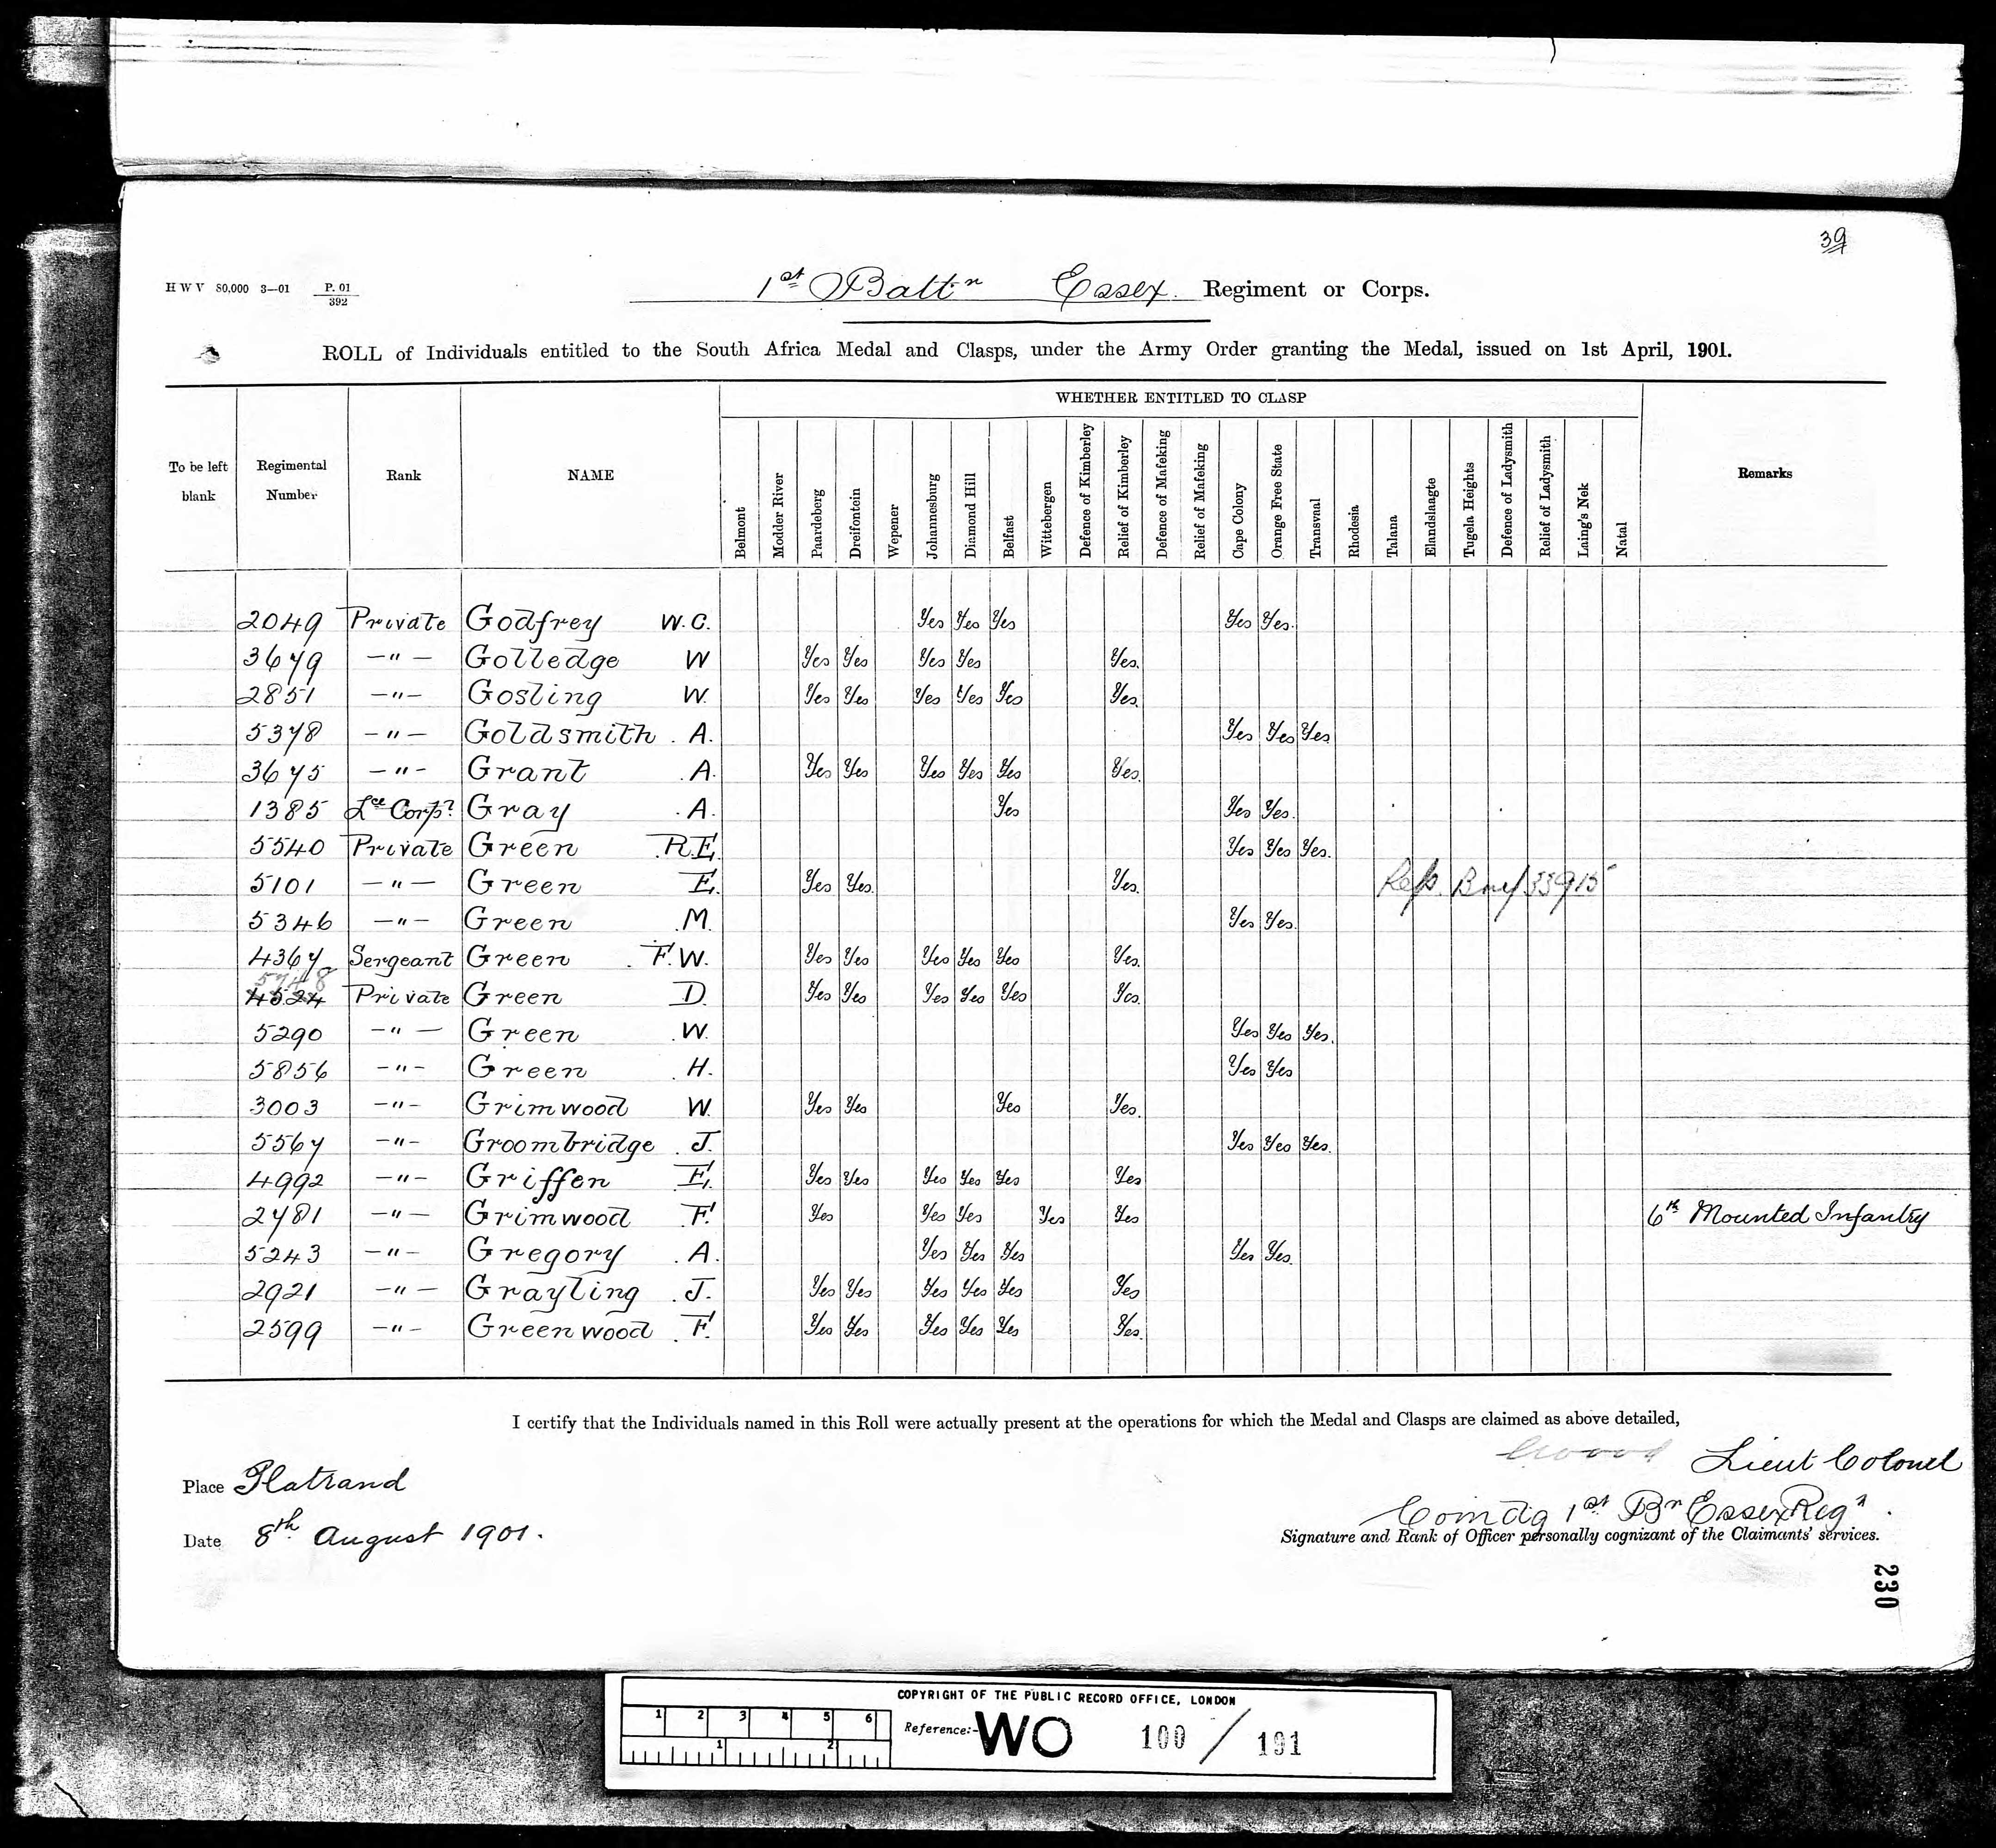 39
H W V 80,000 3—01 P. 01/392
1st Battn Essex. Regiment or Corps.
ROLL of Individuals entitled to the South Africa Medal and Clasps, under the Army Order granting the Medal, issued on 1st April, 1901.
WHETHER ENTITLED TO CLASP
To be left blank Regimental Number Rank NAME Belmont Modder River Paardeberg Dreifontein Wepener Johannesburg Diamond Hill Belfast Wittebergen Defence of Kimberley Relief of Kimberley Defence of Mafeking Relief of Mafeking Cape Colony Orange Free State Transvaal Rhodesia Talana Elandslaagte Tugela Heights Defence of Ladysmith Relief of Ladysmith Laing's Nek Natal Remarks
2049 Private Godfrey W.C. Yes Yes Yes Yes Yes.
3679 —"— Golledge W Yes Yes Yes Yes Yes.
2851 —"— Gosling W. Yes Yes Yes Yes Yes Yes.
5378 —"— Goldsmith . A. Yes Yes Yes
3675 —"— Grant .A. Yes Yes Yes Yes Yes Yes.
1385 Lce Corpl Gray .A. Yes Yes Yes.
5540 Private Green .R.E. Yes Yes Yes.
5101 —"— Green E. Yes Yes. Yes.
5346 —"— Green .M. Yes Yes.
4367 Sergeant Green . F.W. Yes Yes Yes Yes Yes Yes.
4524 Private Green D. Yes Yes Yes Yes Yes Yes.
5290 —"— Green .W. Yes Yes Yes.
5856 —"— Green .H. Yes Yes
3003 —"— Grimwood W. Yes Yes Yes Yes.
5567 —"— Groombridge . J. Yes Yes Yes.
4992 —"— Griffen .E. Yes Yes Yes Yes Yes Yes
2781 —"— Grimwood .F. Yes Yes Yes Yes Yes 6th Mounted Infantry
5243 —"— Gregory . A. Yes Yes Yes Yes Yes.
2921 —"— Grayling . J. Yes Yes Yes Yes Yes Yes
2599 —"— Greenwood . F. Yes Yes Yes Yes Yes Yes.
I certify that the Individuals named in this Roll were actually present at the operations for which the Medal and Clasps are claimed as above detailed,
Lieut Colonel
Place Platrand
Comdg 1st Bn Essex Regt.
Date 8th August 1901.
Signature and Rank of Officer personally cognizant of the Claimants' services.
230
COPYRIGHT OF THE PUBLIC RECORD OFFICE, LONDON
1 2 3 4 5 6
Reference:- WO 100 / 191
1 2